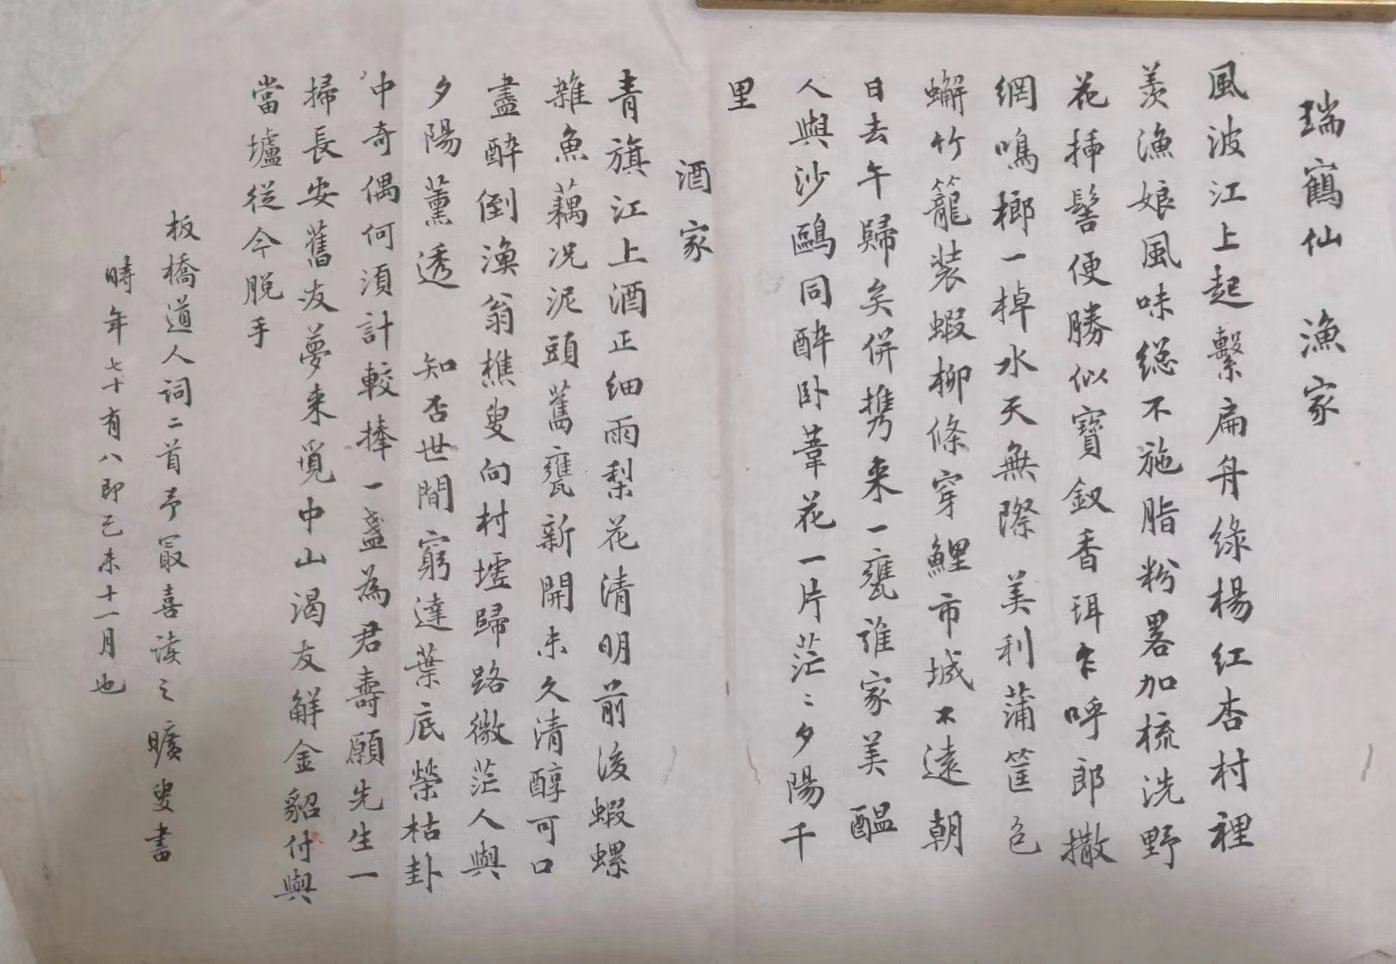 瑞鶴仙 漁家
風波江上起繫扁舟綠楊紅杏村裡
羡漁娘風味總不施脂粉畧加梳洗野
花插髻便勝似寶釵香珥乍呼郎撒
網鳴榔一棹水天無際 美利蒲筐包
蠏竹籠裝蝦柳條穿鯉市城不遠朝
日去午歸矣併携来一甕誰家美醖
人與沙鷗同醉卧葦花一片茫〻夕陽千
里
酒家
青旗江上酒正细雨梨花清明前後蝦螺
雜魚藕况泥頭舊甕新開未久清醇可口
盡醉倒漁翁樵叟向村墟歸路微茫人與
夕陽薰透 知否世間窮達葉底榮枯卦
中奇偶何須計較捧一盞為君壽願先生一
掃長安舊友夢来覓中山渴友解金貂付與
當壚從今脱手
板橋道人词二首予冣喜读之曠叟書
時年七十有八即己未十一月也